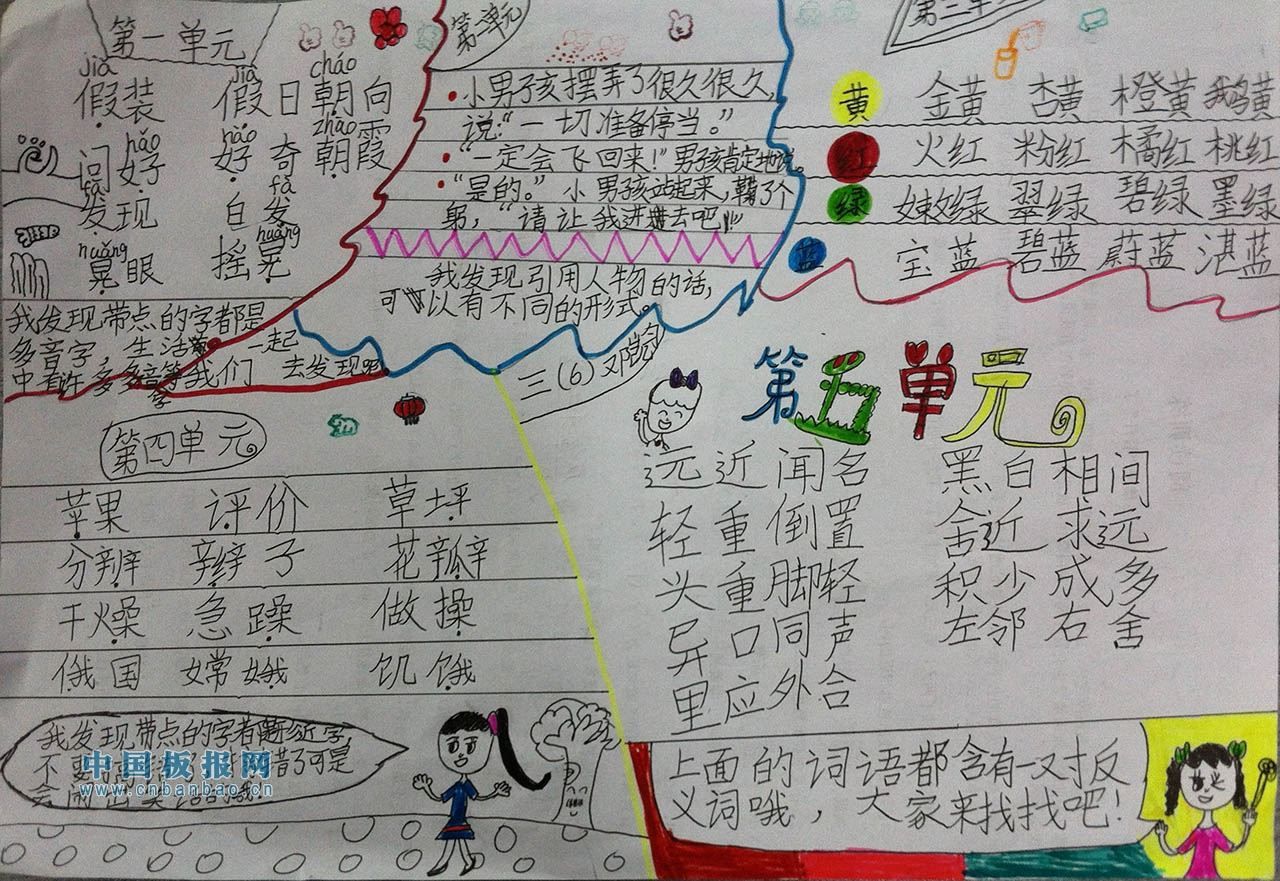 第一单元
jiǎ jià cháo
假装 假日 朝向
hǎo hào zhāo
问好 好奇 朝霞
fā fà
发现 白发
huǎng huàng
晃眼 摇晃
我发现带点的字都是
多音字，生活 一起
中有许多多音字等我们去发现吧
第二单元
小男孩摆弄了很久很久，
说：“一切准备停当。”
“一定会飞回来！”男孩肯定地说。
“是的。”小男孩站起来，鞠了个
躬，“请让我进去吧！”
我发现引用人物的话，
可以有不同的形式。
第三单元
黄 金黄 杏黄 橙黄 鹅黄
红 火红 粉红 橘红 桃红
绿 嫩绿 翠绿 碧绿 墨绿
蓝 宝蓝 碧蓝 蔚蓝 湛蓝
三（6）邓
第四单元
苹果 评价 草坪
分辨 辫子 花瓣
干燥 急躁 做操
俄国 嫦娥 饥饿
我发现带点的字都是形近字，
不要 错了可是
会闹出笑话的哦！
中国板报网
www.cnbanbao.cn
第五单元
远近闻名 黑白相间
轻重倒置 舍近求远
头重脚轻 积少成多
异口同声 左邻右舍
里应外合
上面的词语都含有一对反
义词哦，大家来找找吧！